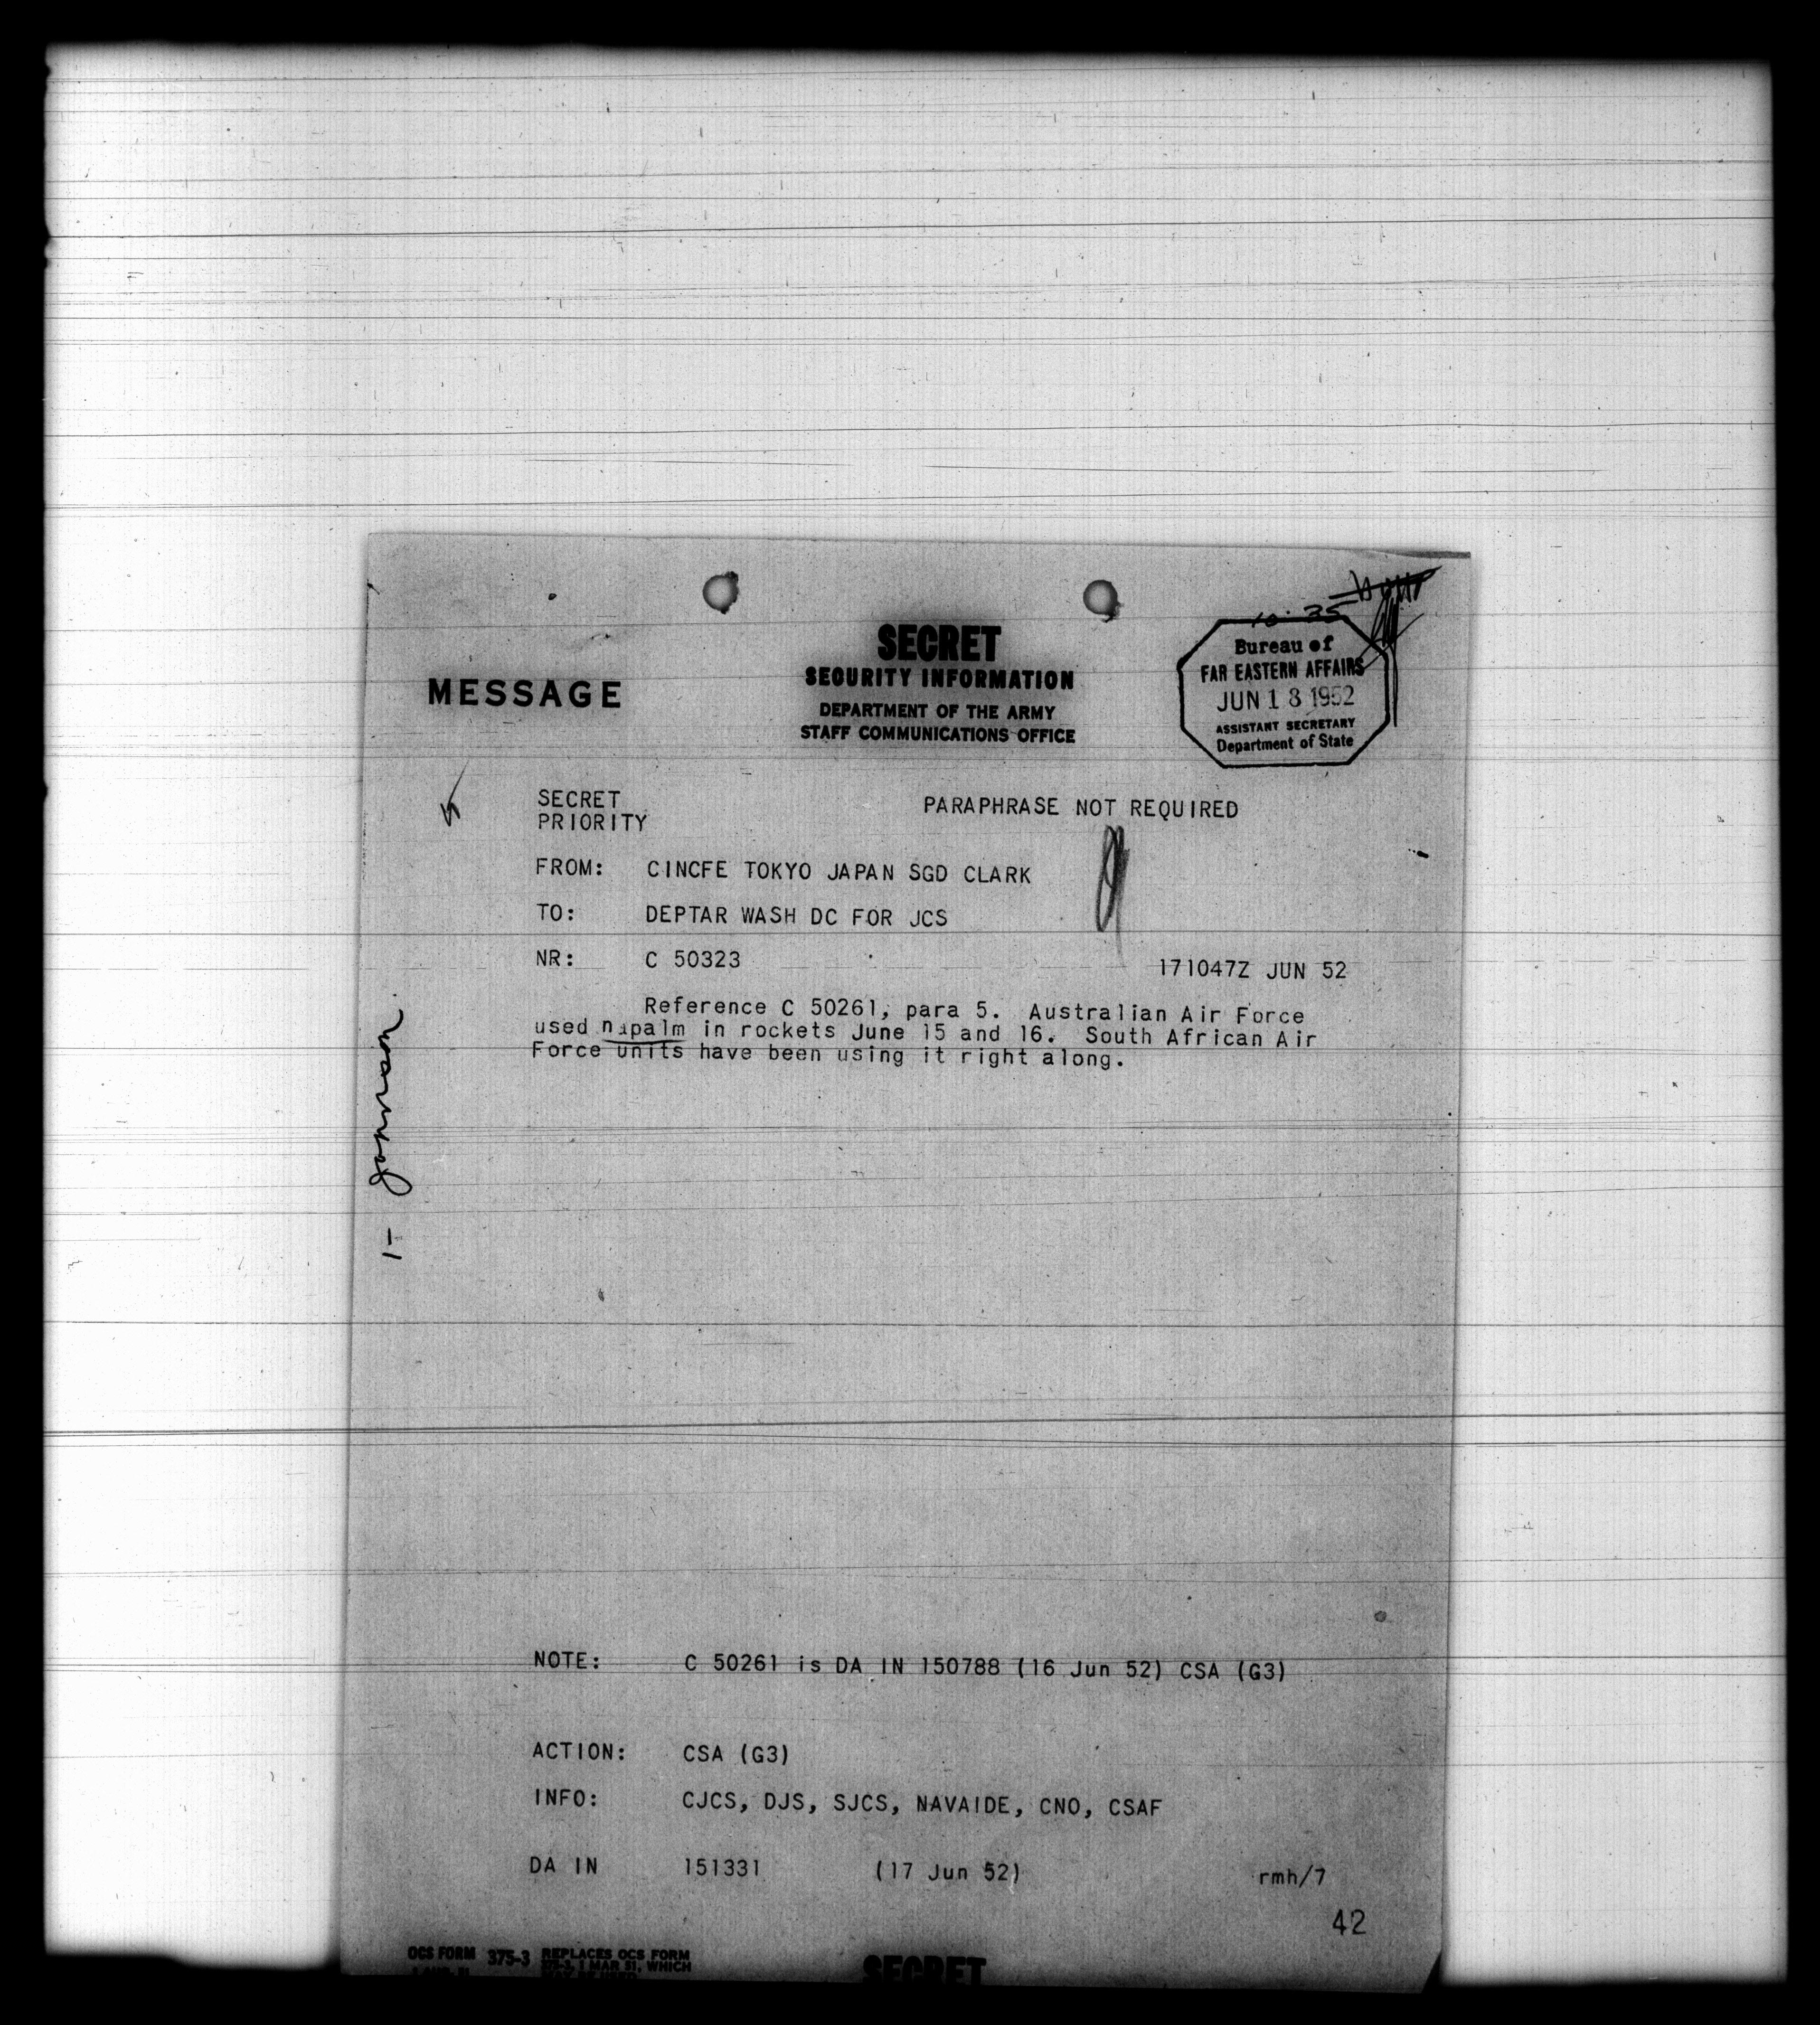 10:35
SECRET
SECURITY INFORMATION
DEPARTMENT OF THE ARMY
STAFF COMMUNICATIONS OFFICE
MESSAGE
Bureau of
FAR EASTERN AFFAIRS
JUN 18 1952
ASSISTANT SECRETARY
Department of State
SECRET
PRIORITY
PARAPHRASE NOT REQUIRED
FROM: CINCFE TOKYO JAPAN SGD CLARK
TO: DEPTAR WASH DC FOR JCS
NR: C 50323 171047Z JUN 52
Reference C 50261, para 5. Australian Air Force
used napalm in rockets June 15 and 16. South African Air
Force units have been using it right along.
1- Johnson
NOTE: C 50261 is DA IN 150788 (16 Jun 52) CSA (G3)
ACTION: CSA (G3)
INFO: CJCS, DJS, SJCS, NAVAIDE, CNO, CSAF
DA IN 151331 (17 Jun 52) rmh/7
42
OCS FORM 375-3 REPLACES OCS FORM
375-3, 1 MAR 51, WHICH
SECRET